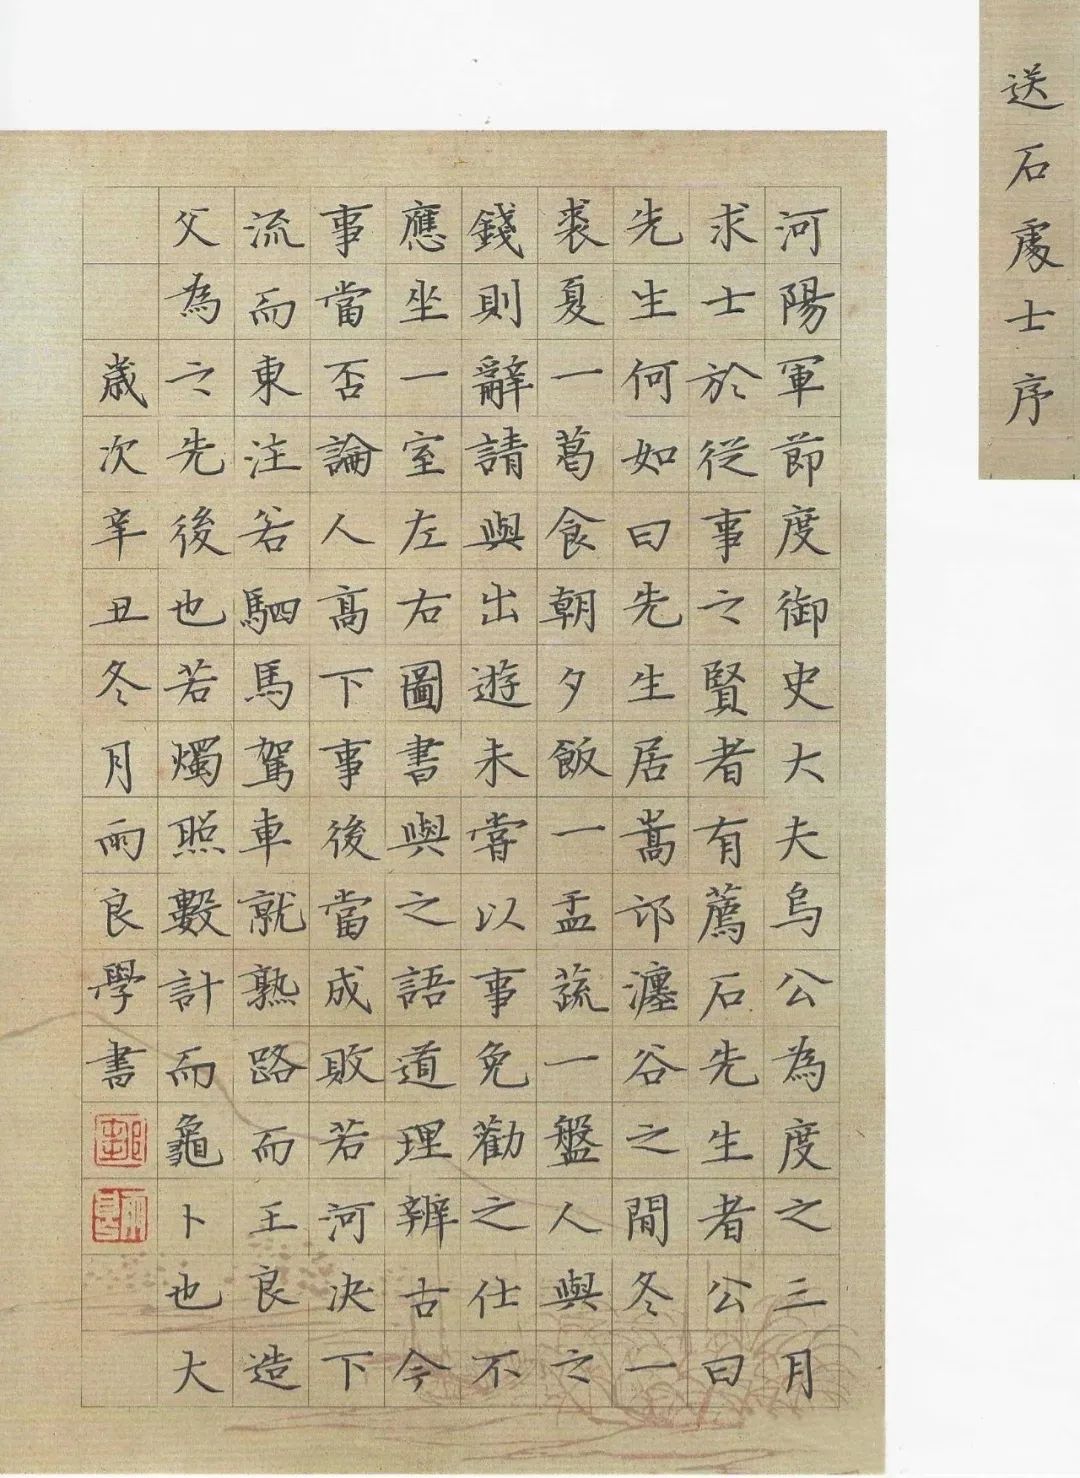 送石處士序
河陽軍節度御史大夫烏公為度之三月
求士於從事之賢者有薦石先生者公曰
先生何如曰先生居嵩邙瀍谷之間冬一
裘夏一葛食朝夕飯一盂蔬一盤人與之
錢則辭請與出遊未嘗以事免勸之仕不
應坐一室左右圖書與之語道理辨古今
事當否論人高下事後當成敗若河決下
流而東注若駟馬駕車就熟路而王良造
父為之先後也若燭照數計而龜卜也大
歲次辛丑冬月雨良學書